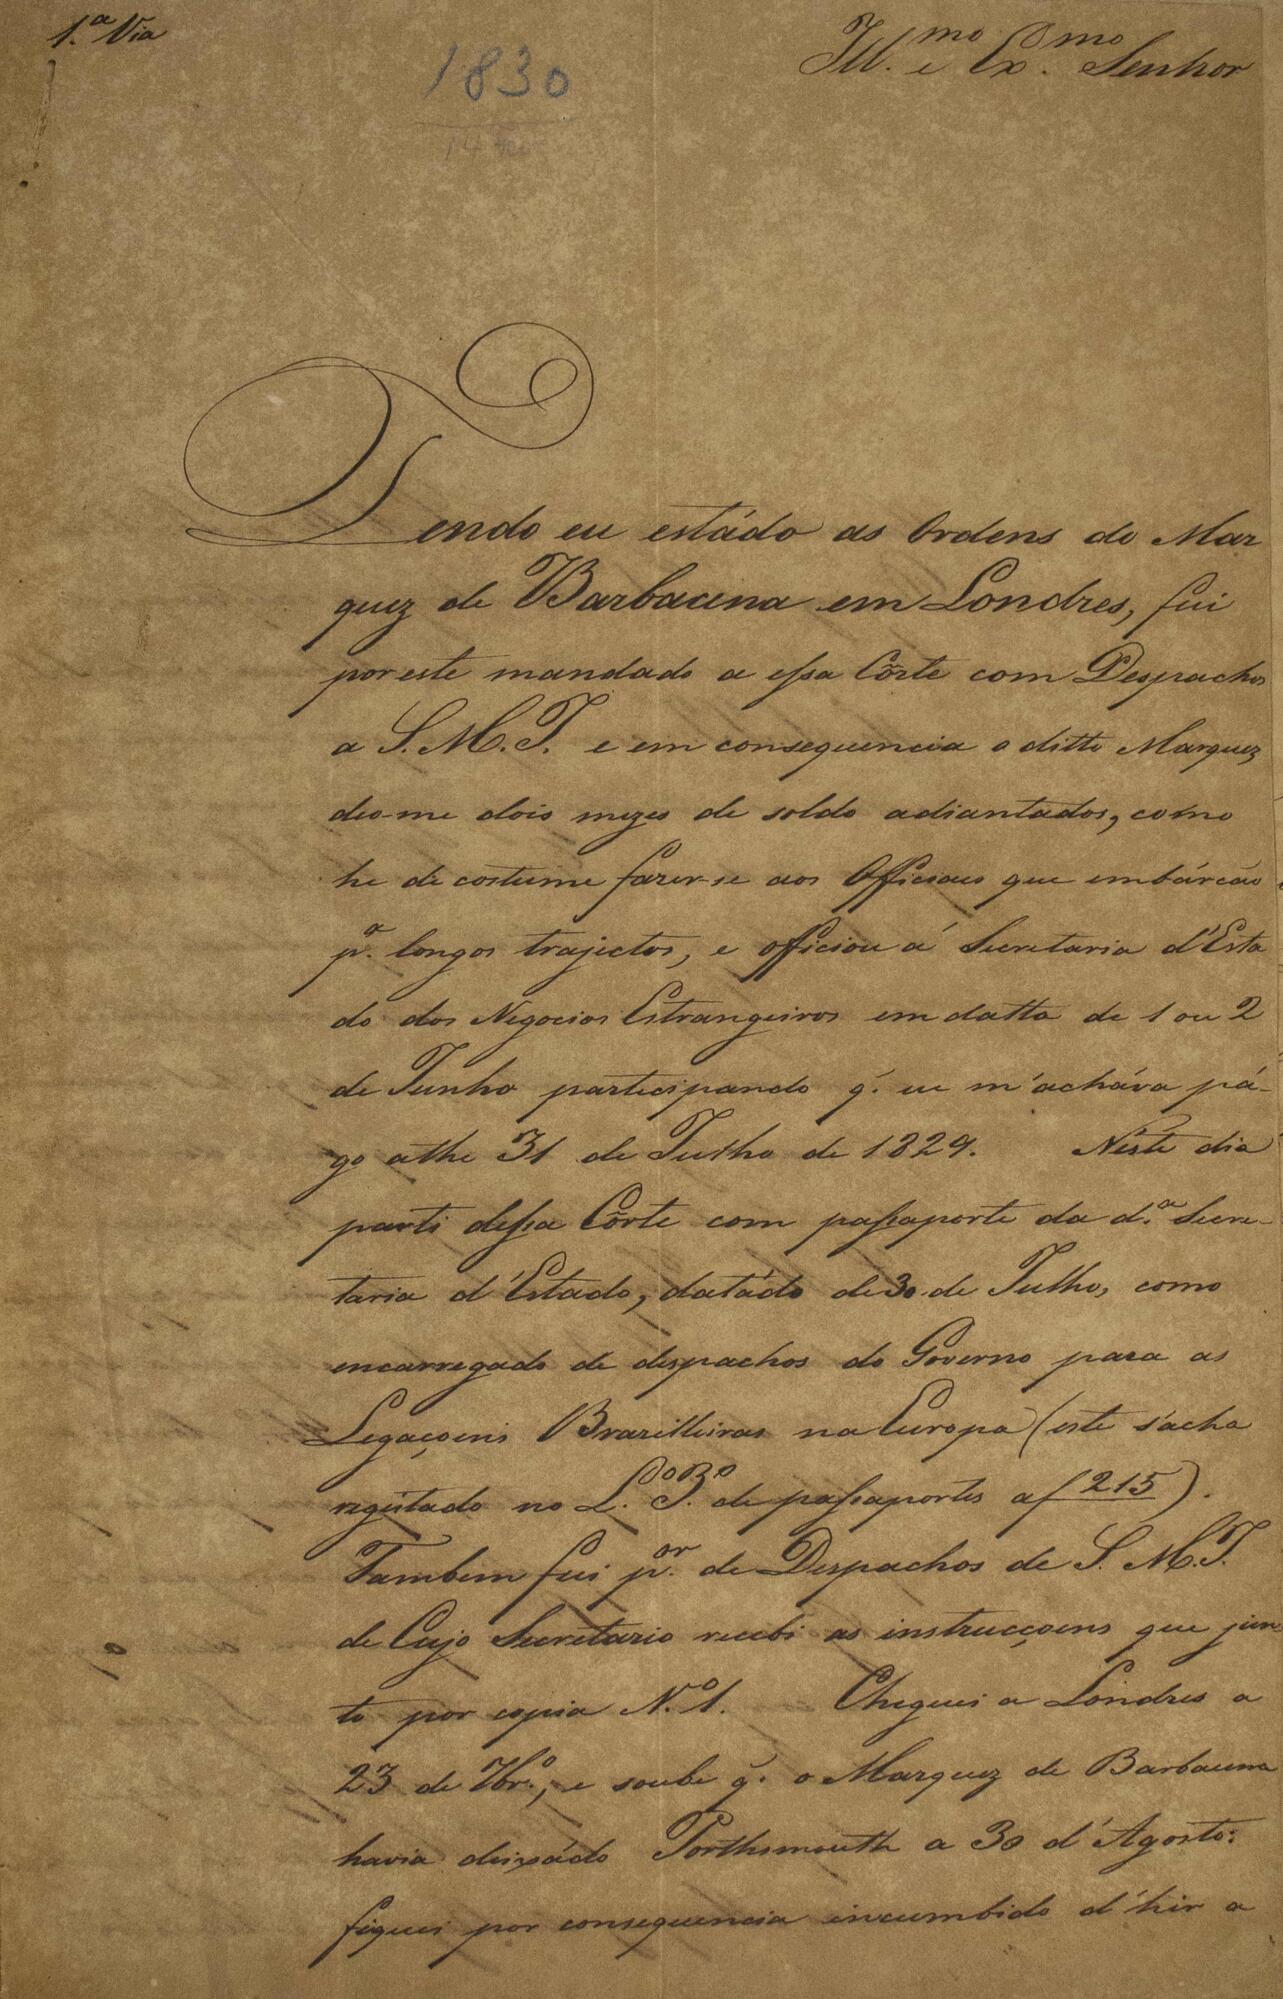 1.ª Via
Ill.mo e Ex.mo Senhor
1830
Tendo eu estádo as Ordens do Mar
quez de Barbacena em Londres, fui
por este mandado a essa Côrte com Despachos
a S. M. I. e em consequencia o ditto Marquez
deo-me dois mezes de soldo adiantados, como
he de costume fazer-se aos Officiaes que embárcão
p.ª longos trajectos, e officiou á Secretaria d'Esta
do dos Negocios Estrangeiros em datta de 1 ou 2
de Junho participando q. eu m'acháva pá-
go athe 31 de Julho de 1829. Néste dia
parti dessa Côrte com passaporte da d.ª Secre-
taria d'Estado, datádo de 30 de Julho, como
encarregado de despachos do Governo para as
Legaçoens Brazilleiras na Europa (este s'acha
regístado no L.º 3.º de passaportes a f 215).
Tambem fui p.or de Despachos de S. M. I.
de Cujo Secretario recebi as instrucçoens que jun
to por copia N.º 1. Cheguei a Londres a
23 de 7br.º, e soube q. o Marquez de Barbacena
havia deixádo Porthsmouth a 30 d'Agosto:
fiquei por consequencia incumbido d'hir a